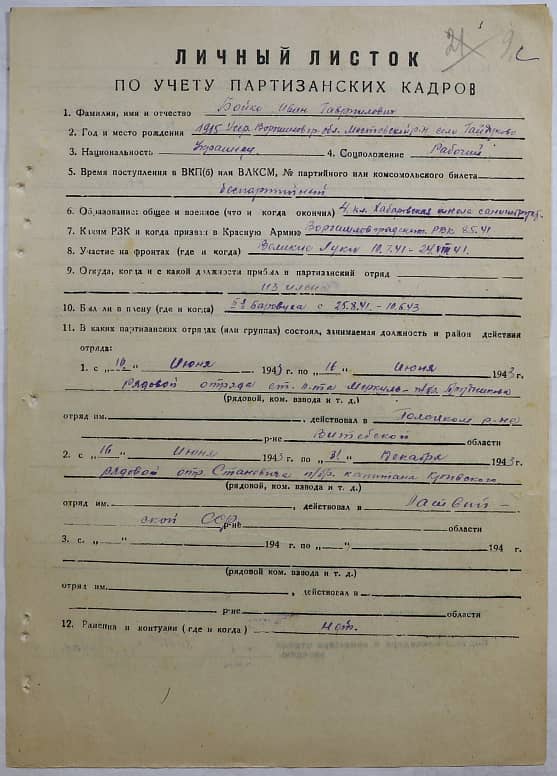 21 9
ЛИЧНЫЙ ЛИСТОК
ПО УЧЕТУ ПАРТИЗАНСКИХ КАДРОВ
1. Фамилия, имя и отчество Бойко Иван Гаврилович
2. Год и место рождения 1915 Усср Ворошиловгр. обл. р-н село
3. Национальность Украинец 4. Соцположение Рабочий
5. Время поступления в ВКП(б) или ВЛКСМ, № партийного или комсомольского билета
беспартийный
6. Образование: общее и военное (что и когда окончил) 4 кл. Хабаровская школа
7. Каким РЗК и когда призван в Красную Армию Ворошиловградским РВК 85.41
8. Участие на фронтах (где и когда) Великие Луки 10.7.41 - 24.VIII 41.
9. Откуда, когда и с какой должности прибыл в партизанский отряд
из плена
10. Был ли в плену (где и когда) с 25.8.41. - 10.6.43
11. В каких партизанских отрядах (или группах) состоял, занимаемая должность и район действия
отряда:
1. с „10“ Июня 1943 г. по „16“ Июня 1943 г.
рядовой отряда ст. л-та
(рядовой, ком. взвода и т. д.)
отряд им. , действовал в р-не
р-не Витебской области
2. с „16“ Июня 1943 г. по „31“ Декабря 1943 г.
рядовой отр. Становича п/бр. капитана
(рядовой, ком. взвода и т. д.)
отряд им. , действовал в Латвий-
ской ССР р-не области
3. с „ “ 194 г. по „ “ 194 г.
(рядовой, ком. взвода и т. д.)
отряд им. , действовал в
р-не области
12. Ранения и контузии (где и когда) нет.